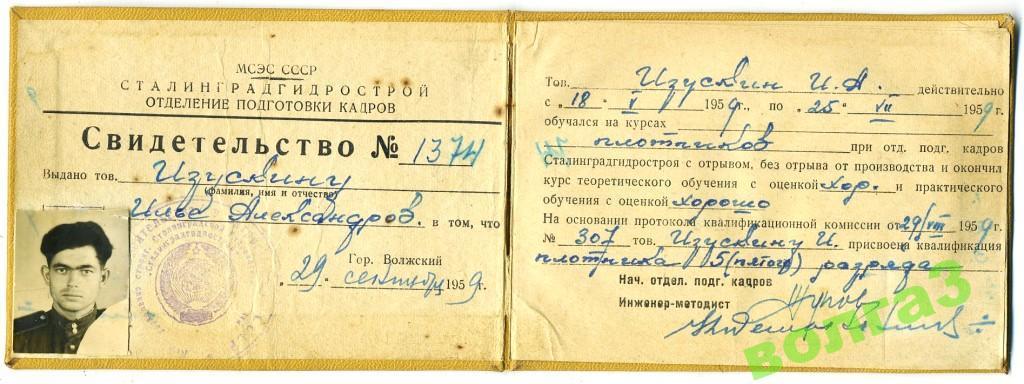 МСЭС СССР
СТАЛИНГРАДГИДРОСТРОЙ
ОТДЕЛЕНИЕ ПОДГОТОВКИ КАДРОВ
Свидетельство № 1374
Выдано тов. Изускину
(фамилия, имя и отчество)
Илье Александров. в том, что
Гор. Волжский
"29" сентября 1959г.
Тов. Изускин И. А. действительно
с "18" V 1959г., по "25" VII 1959г.
обучался на курсах
плотников при отд. подг. кадров
Сталинградгидростроя с отрывом, без отрыва от производства и окончил
курс теоретического обучения с оценкой хор. и практического
обучения с оценкой хорошо
На основании протокола квалификационной комиссии от 29/VIII 1959г.
№ 307 тов. Изускину И. присвоена квалификация
плотника 5 (пятого) разряда
Нач. отдел. подг. кадров
Инженер-методист
волга3